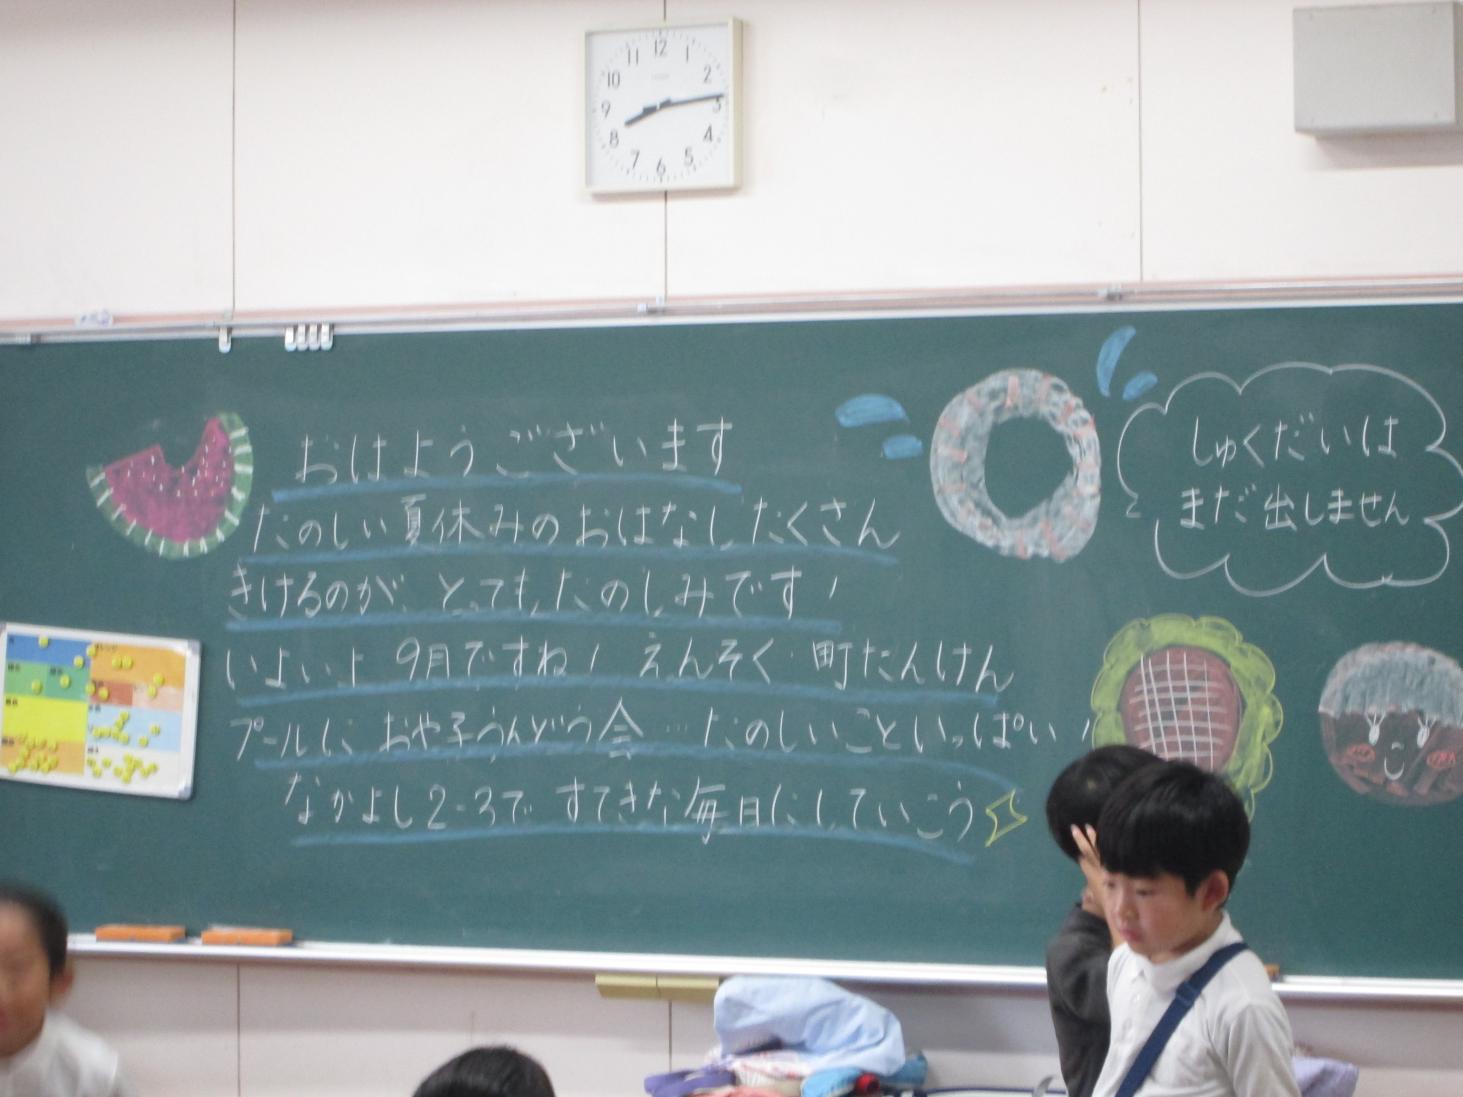 おはようございます
たのしい夏休みのおはなしたくさん
きけるのが、とってもたのしみです!
いよいよ 9月ですね! えんそく 町たんけん
プールに おや子うんどう会…たのしいこといっぱい!
なかよし2-3で すてきな毎日にしていこう
しゅくだいは
まだ出しません
12
1
2
3
4
5
6
7
8
9
10
11